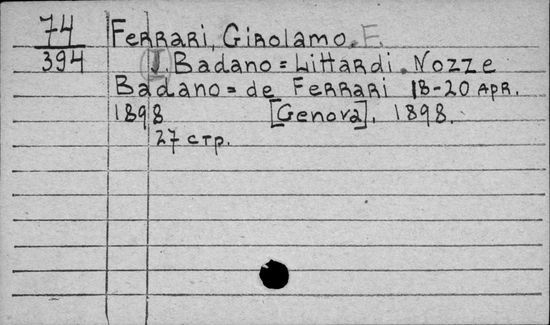 74 Ferrari, Girolamo. F.
394 I. Badano = Littardi. Nozze
Badano = de Ferrari 18-20 Apr.
1898 [Genova], 1898.
27 стр.